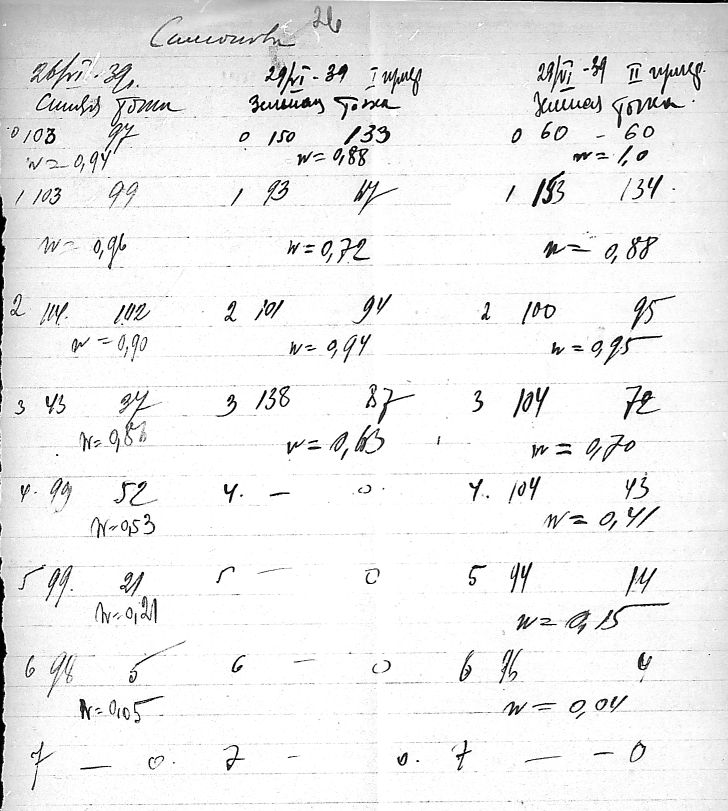 Самсонова 26
26/VI-39. 29/VI-39 I пред. 29/VI-39 II пред.
Синяя точка Зеленая точка Зеленая точка.
0 103 97 0 150 133 0 60 - 60
n=0,94 n=0,88 n=1,0
1 103 99 1 93 67 1 153 134.
n=0,96 n=0,72 n=0,88
2 114. 102 2 101 94 2 100 95
n=0,90 n=0,94 n=0,95
3 43 37 3 138 87 3 104 72
n=0,63 n=0,70
4. 99 52 4. — 0. 4. 104 43
n=0,53 n=0,41
5 99. 21 5 — 0 5 94 14
n=0,21 n=0,15
6 98 5 6 — 0 6 96 4
n=0,05 n=0,04
7 — 0. 7 - 0. 7 — - 0